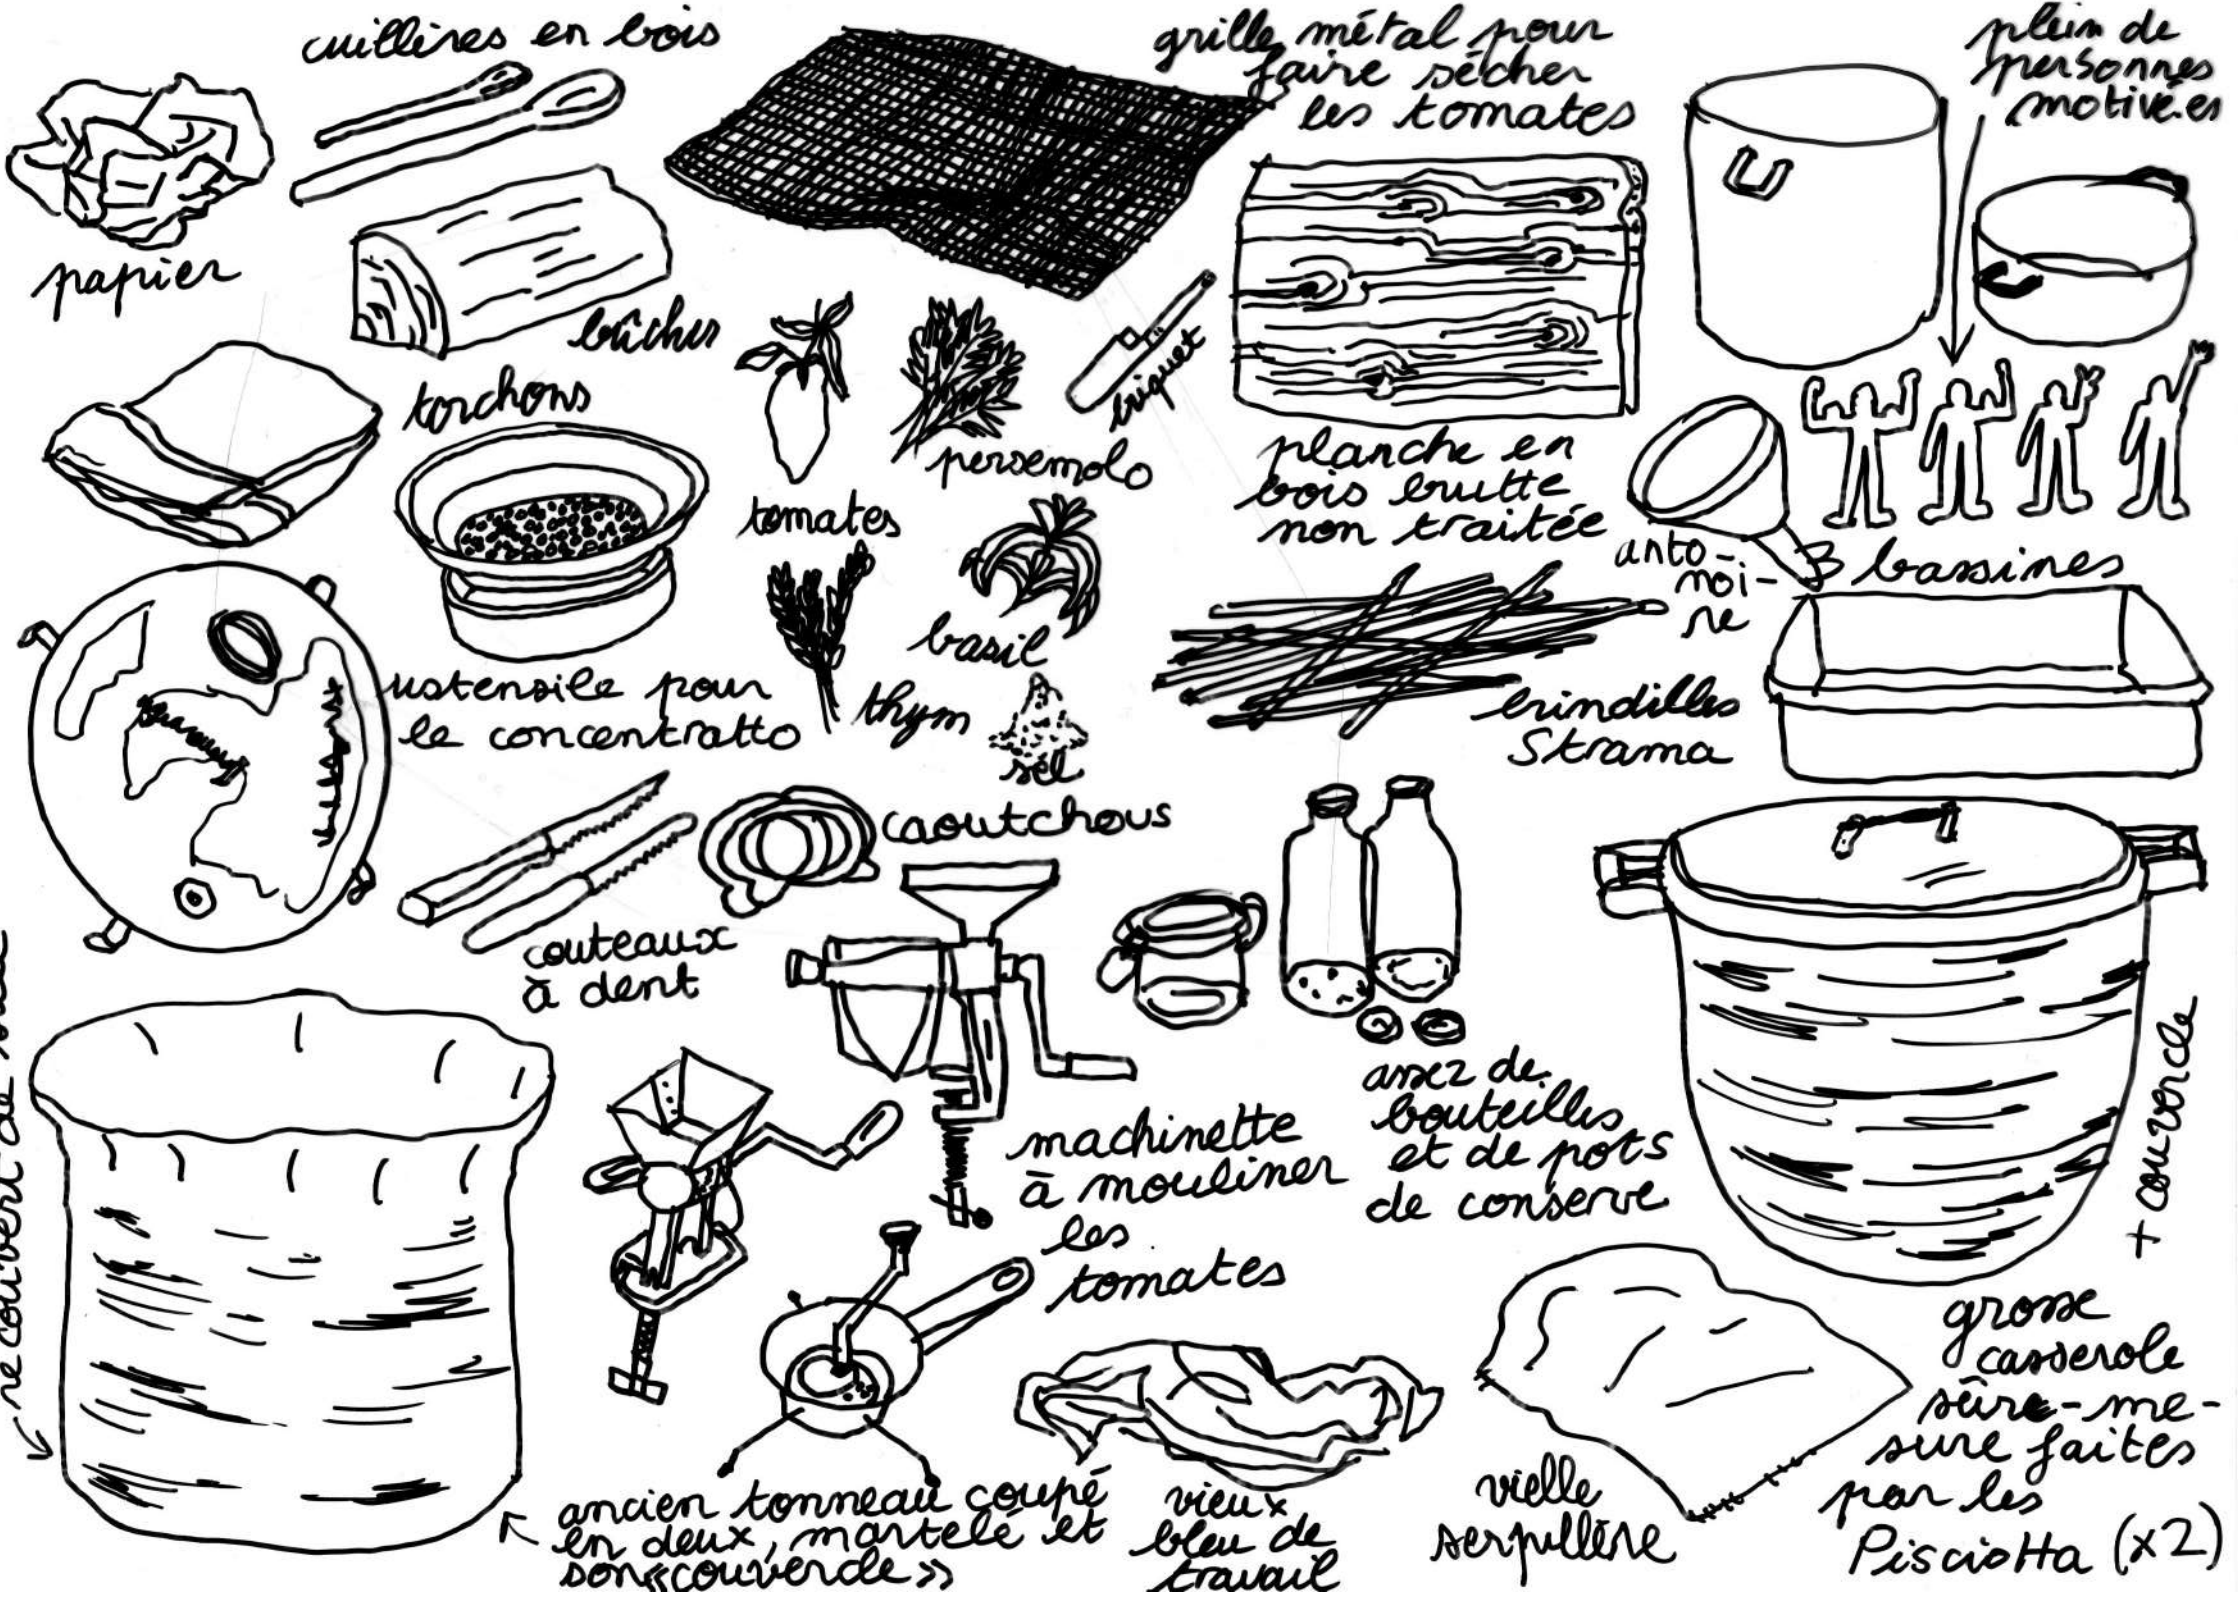 cuillères en bois
grille métal pour
faire sécher
les tomates
plein de
personnes
motivé.es
papier
bûches
torchons
briquet
persemolo
tomates
planche en
bois brutte
non traitée
anto-
noi-
ne
3 bassines
basil
ustensile pour
le concentratto
thym
sel
brindilles
Strama
caoutchous
couteaux
à dent
machinette
à mouliner
les
tomates
assez de
bouteilles
et de pots
de conserve
+ couvercle
grosse
casserole
sûre-me-
sure faites
par les
Pisciotta (x2)
recouvert de
ancien tonneau coupé
en deux, martelé et
son «couvercle»
vieux
bleu de
travail
vielle
serpillère